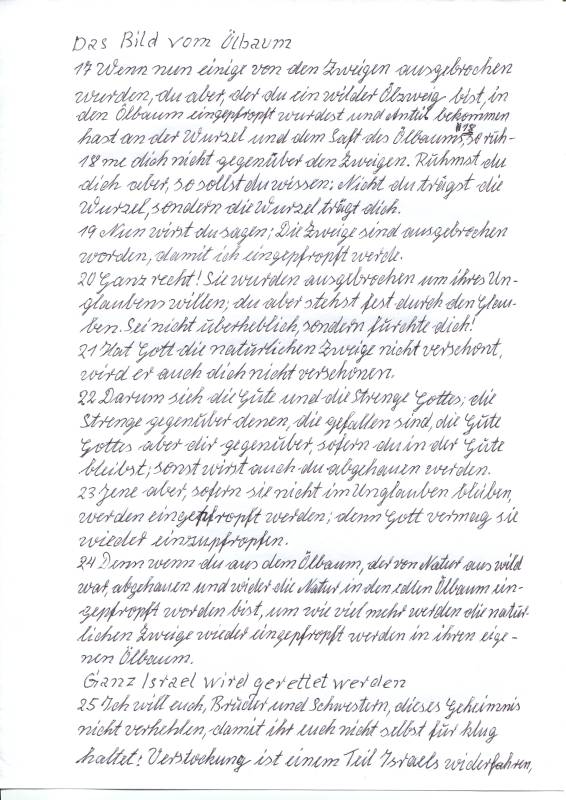 Das Bild vom Ölbaum
17 Wenn nun einige von den Zweigen ausgebrochen
wurden, du aber, der du ein wilder Ölzweig bist, in
den Ölbaum eingepfropft wurdest und Anteil bekommen
hast an der Wurzel und dem Saft des Ölbaums, 18 so rüh-
18 me dich nicht gegenüber den Zweigen. Rühmst du
dich aber, so sollst du wissen: Nicht du trägst die
Wurzel, sondern die Wurzel trägt dich.
19 Nun wirst du sagen; Die Zweige sind ausgebrochen
worden, damit ich eingepfropft werde.
20 Ganz recht! Sie wurden ausgebrochen um ihres Un-
glaubens willen; du aber stehst fest durch den Glau-
ben. Sei nicht überheblich, sondern fürchte dich!
21 Hat Gott die natürlichen Zweige nicht verschont,
wird er auch dich nicht verschonen.
22 Darum sieh die Güte und die Strenge Gottes; die
Strenge gegenüber denen, die gefallen sind, die Güte
Gottes aber dir gegenüber, sofern du in der Güte
bleibst; sonst wirst auch du abgehauen werden.
23 Jene aber, sofern sie nicht im Unglauben bleiben,
werden eingepfropft werden; denn Gott vermag sie
wieder einzupfropfen.
24 Denn wenn du aus dem Ölbaum, der von Natur aus wild
war, abgehauen und wider die Natur in den edlen Ölbaum ein-
gepfropft worden bist, um wie viel mehr werden die natür-
lichen Zweige wieder eingepfropft werden in ihren eige-
nen Ölbaum.
Ganz Israel wird gerettet werden
25 Ich will euch, Brüder und Schwestern, dieses Geheimnis
nicht verhehlen, damit ihr euch nicht selbst für klug
haltet: Verstockung ist einem Teil Israels widerfahren,